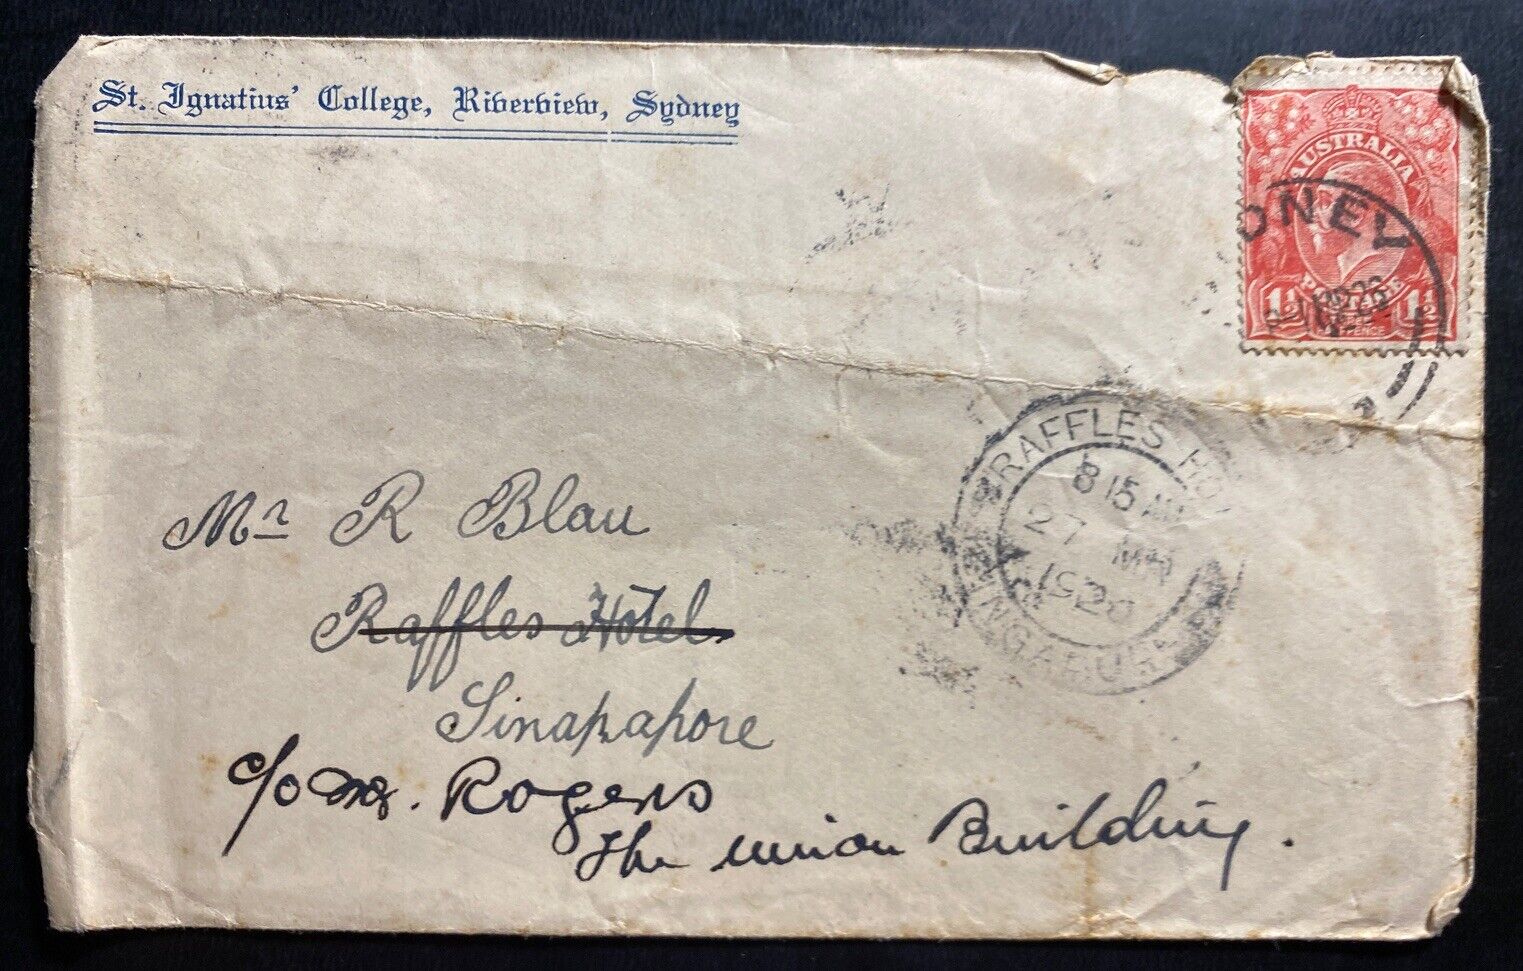 St. Ignatius' College, Riverview, Sydney
AUSTRALIA
DNEY
POSTAGE
1½ 1½
PENCE
RAFFLES HO
8 15 AM
27 MR
1928
INGAPURA
Mr R Blau
Raffles Hotel
Sinapapore
c/o Mr. Rogers
The Union Building.